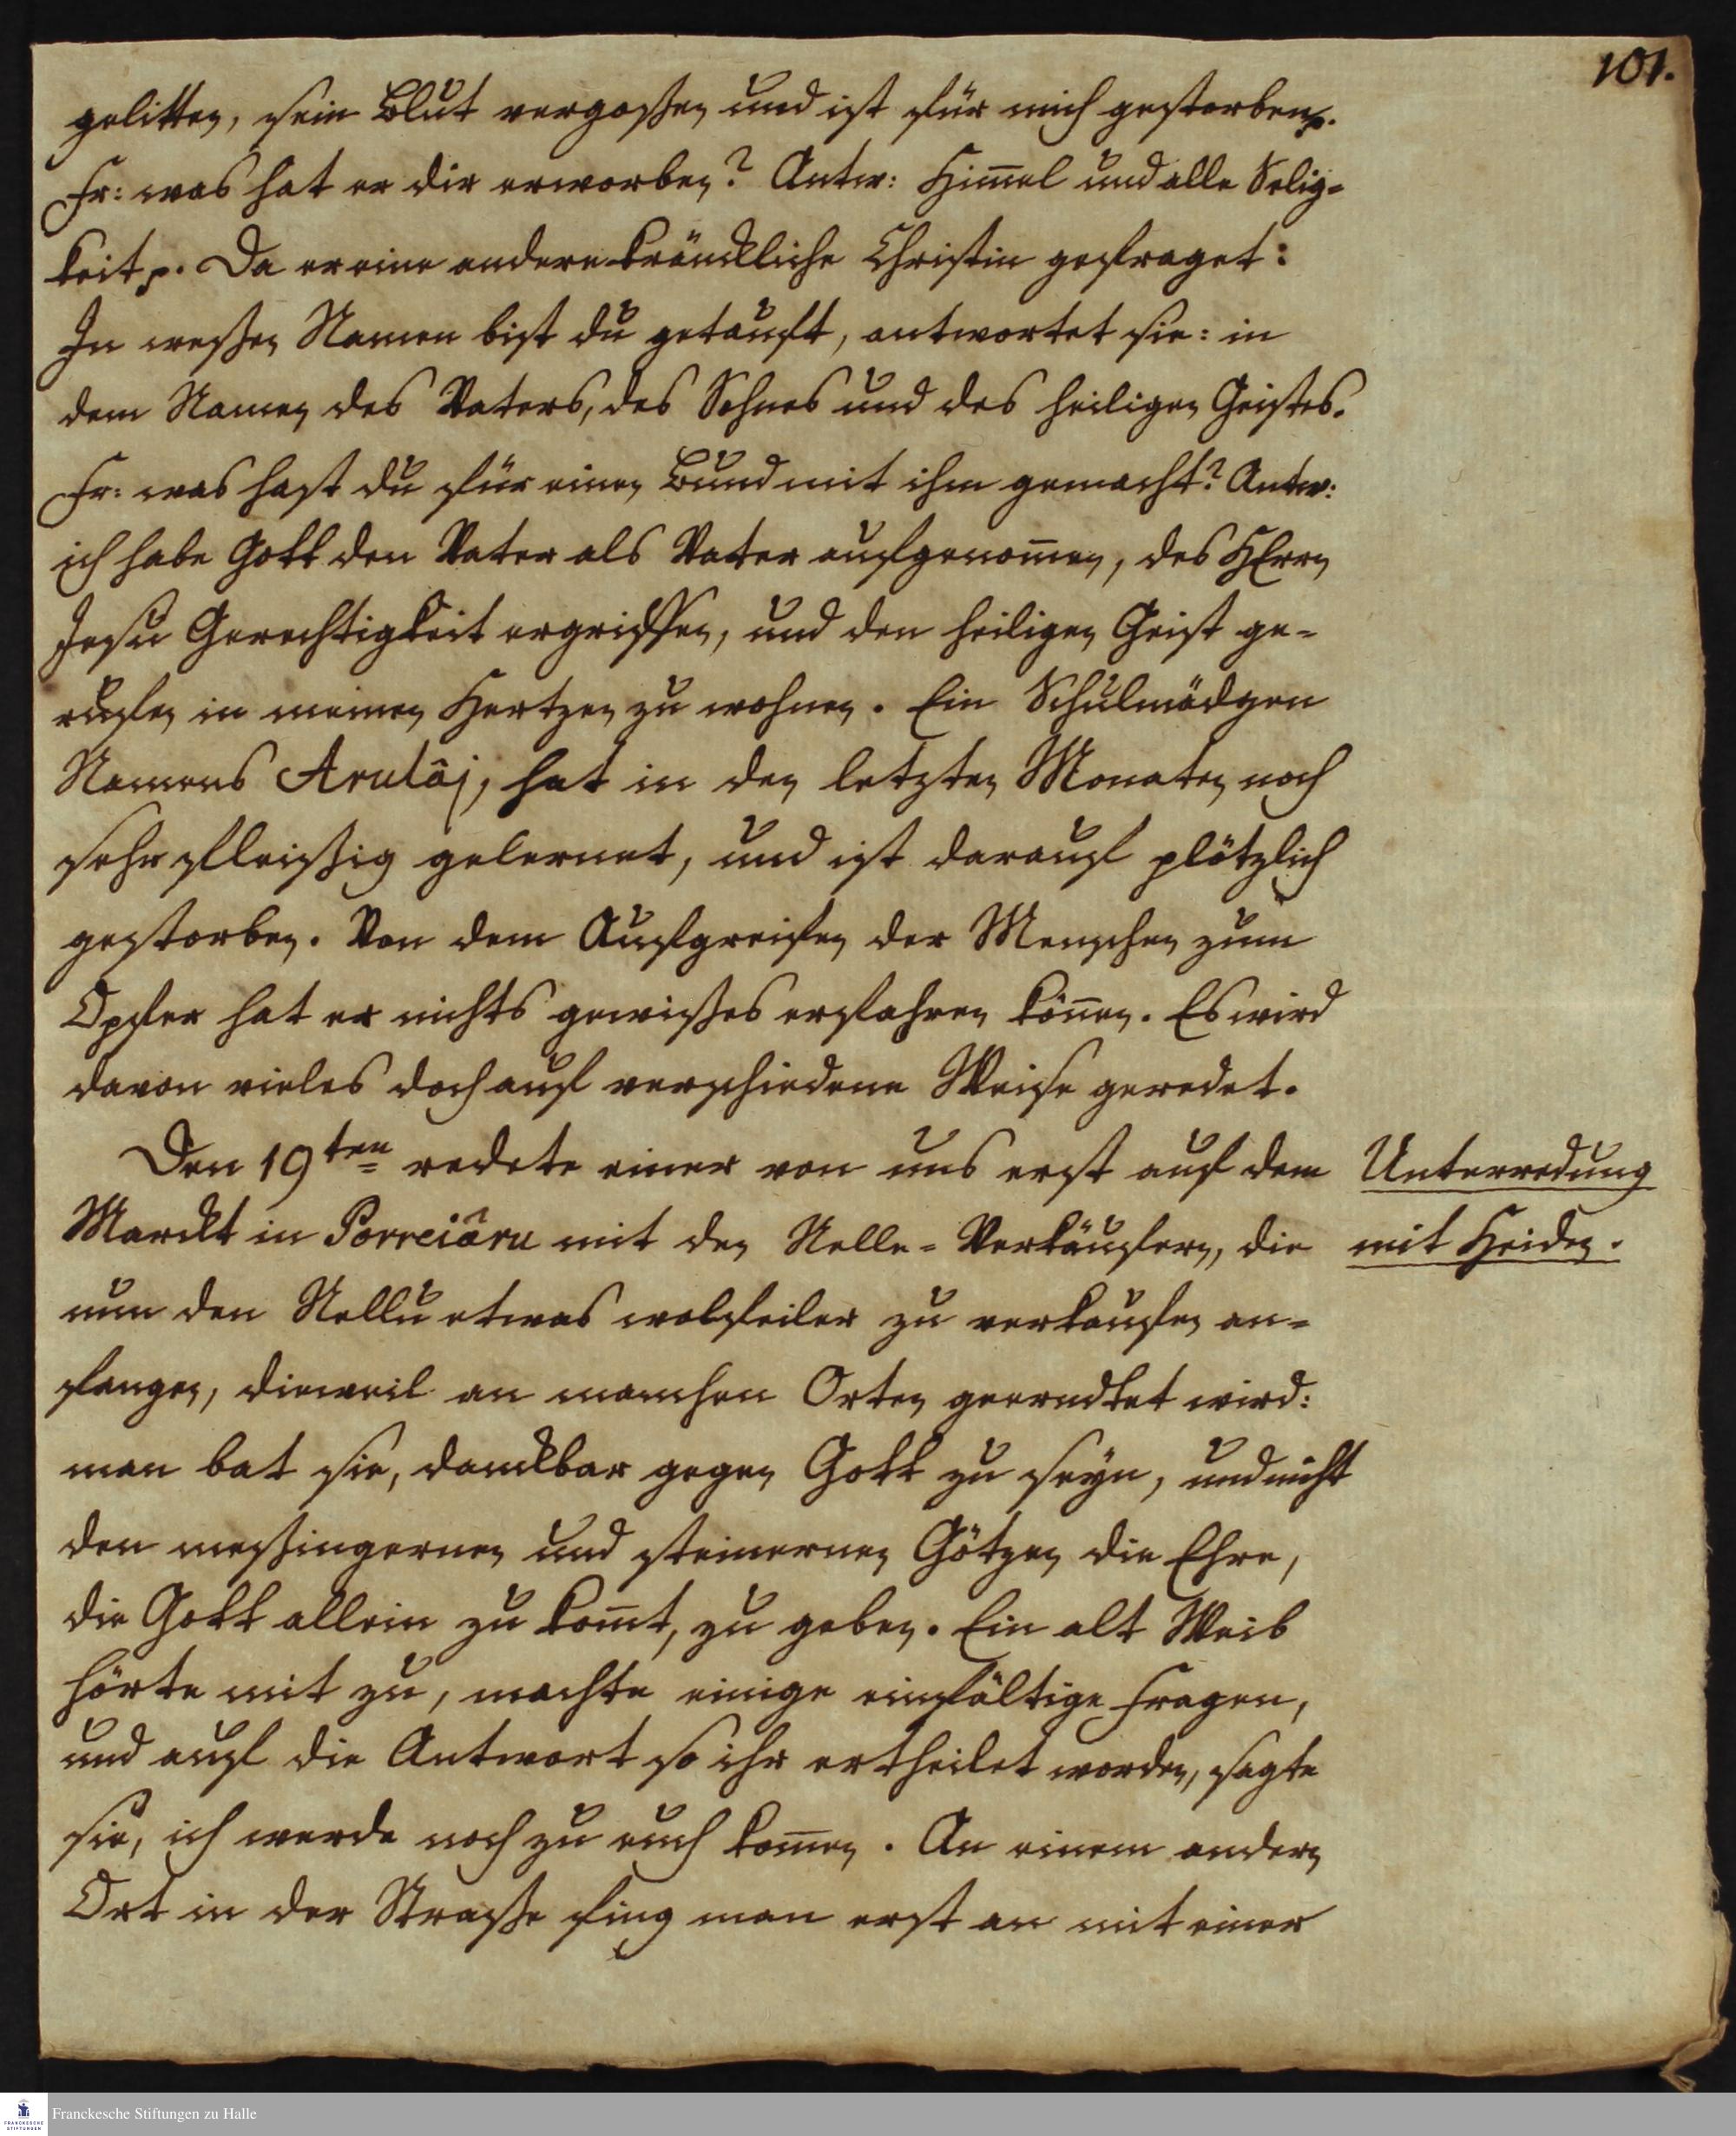 101.
gelitten, sein Blut vergoßen und ist für mich gestorben p.
Fr: was hat er dir erworben? Antw: Him̅el und alle Selig=
keit p. Da er eine andere kränckliche Christin gefraget:
In weßen Namen bist du getauft, antwortet sie: in
dem Namen des Vaters, des Sohnes und des heiligen Geistes.
Fr: was hast du für einen Bund mit ihm gemacht? Antw:
ich habe Gott den Vater als Vater aufgenom̅en, des HErrn
Jesu Gerechtigkeit ergriffen, und den heiligen Geist ge=
rufen in meinen Hertzen zu wohnen. Ein Schulmädgen
Namens Arulâj, hat in den letzten Monaten noch
sehr fleißig gelernet, und ist darauf plötzlich
gestorben. Von dem Aufgreifen der Menschen zum
Opfer hat er nichts gewißes erfahren kön̅en. Es wird
davon vieles doch auf verschiedene Weise geredet.
Den 19ten redete einer von uns erst auf dem
Marckt in Porreiâru mit den Nelle=Verkäufern, die
nun den Nellu etwas wolfeiler zu verkaufen an=
fangen, dieweil an manchen Orten geerndtet wird:
man bat sie, danckbar gegen Gott zu seyn, und nicht
den meßingernen und steinernen Götzen die Ehre,
die Gott allein zu kom̅t, zu geben. Ein alt Weib
hörte mit zu, machte einige einfältige Fragen,
und auf die Antwort so ihr ertheilet worden, sagte
sie, ich werde noch zu euch kom̅en. An einem andern
Ort in der Straße fing man erst an mit einer
Unterredung
mit Heiden.
Franckesche Stiftungen zu Halle
FRANCKESCHE
STIFTUNGEN